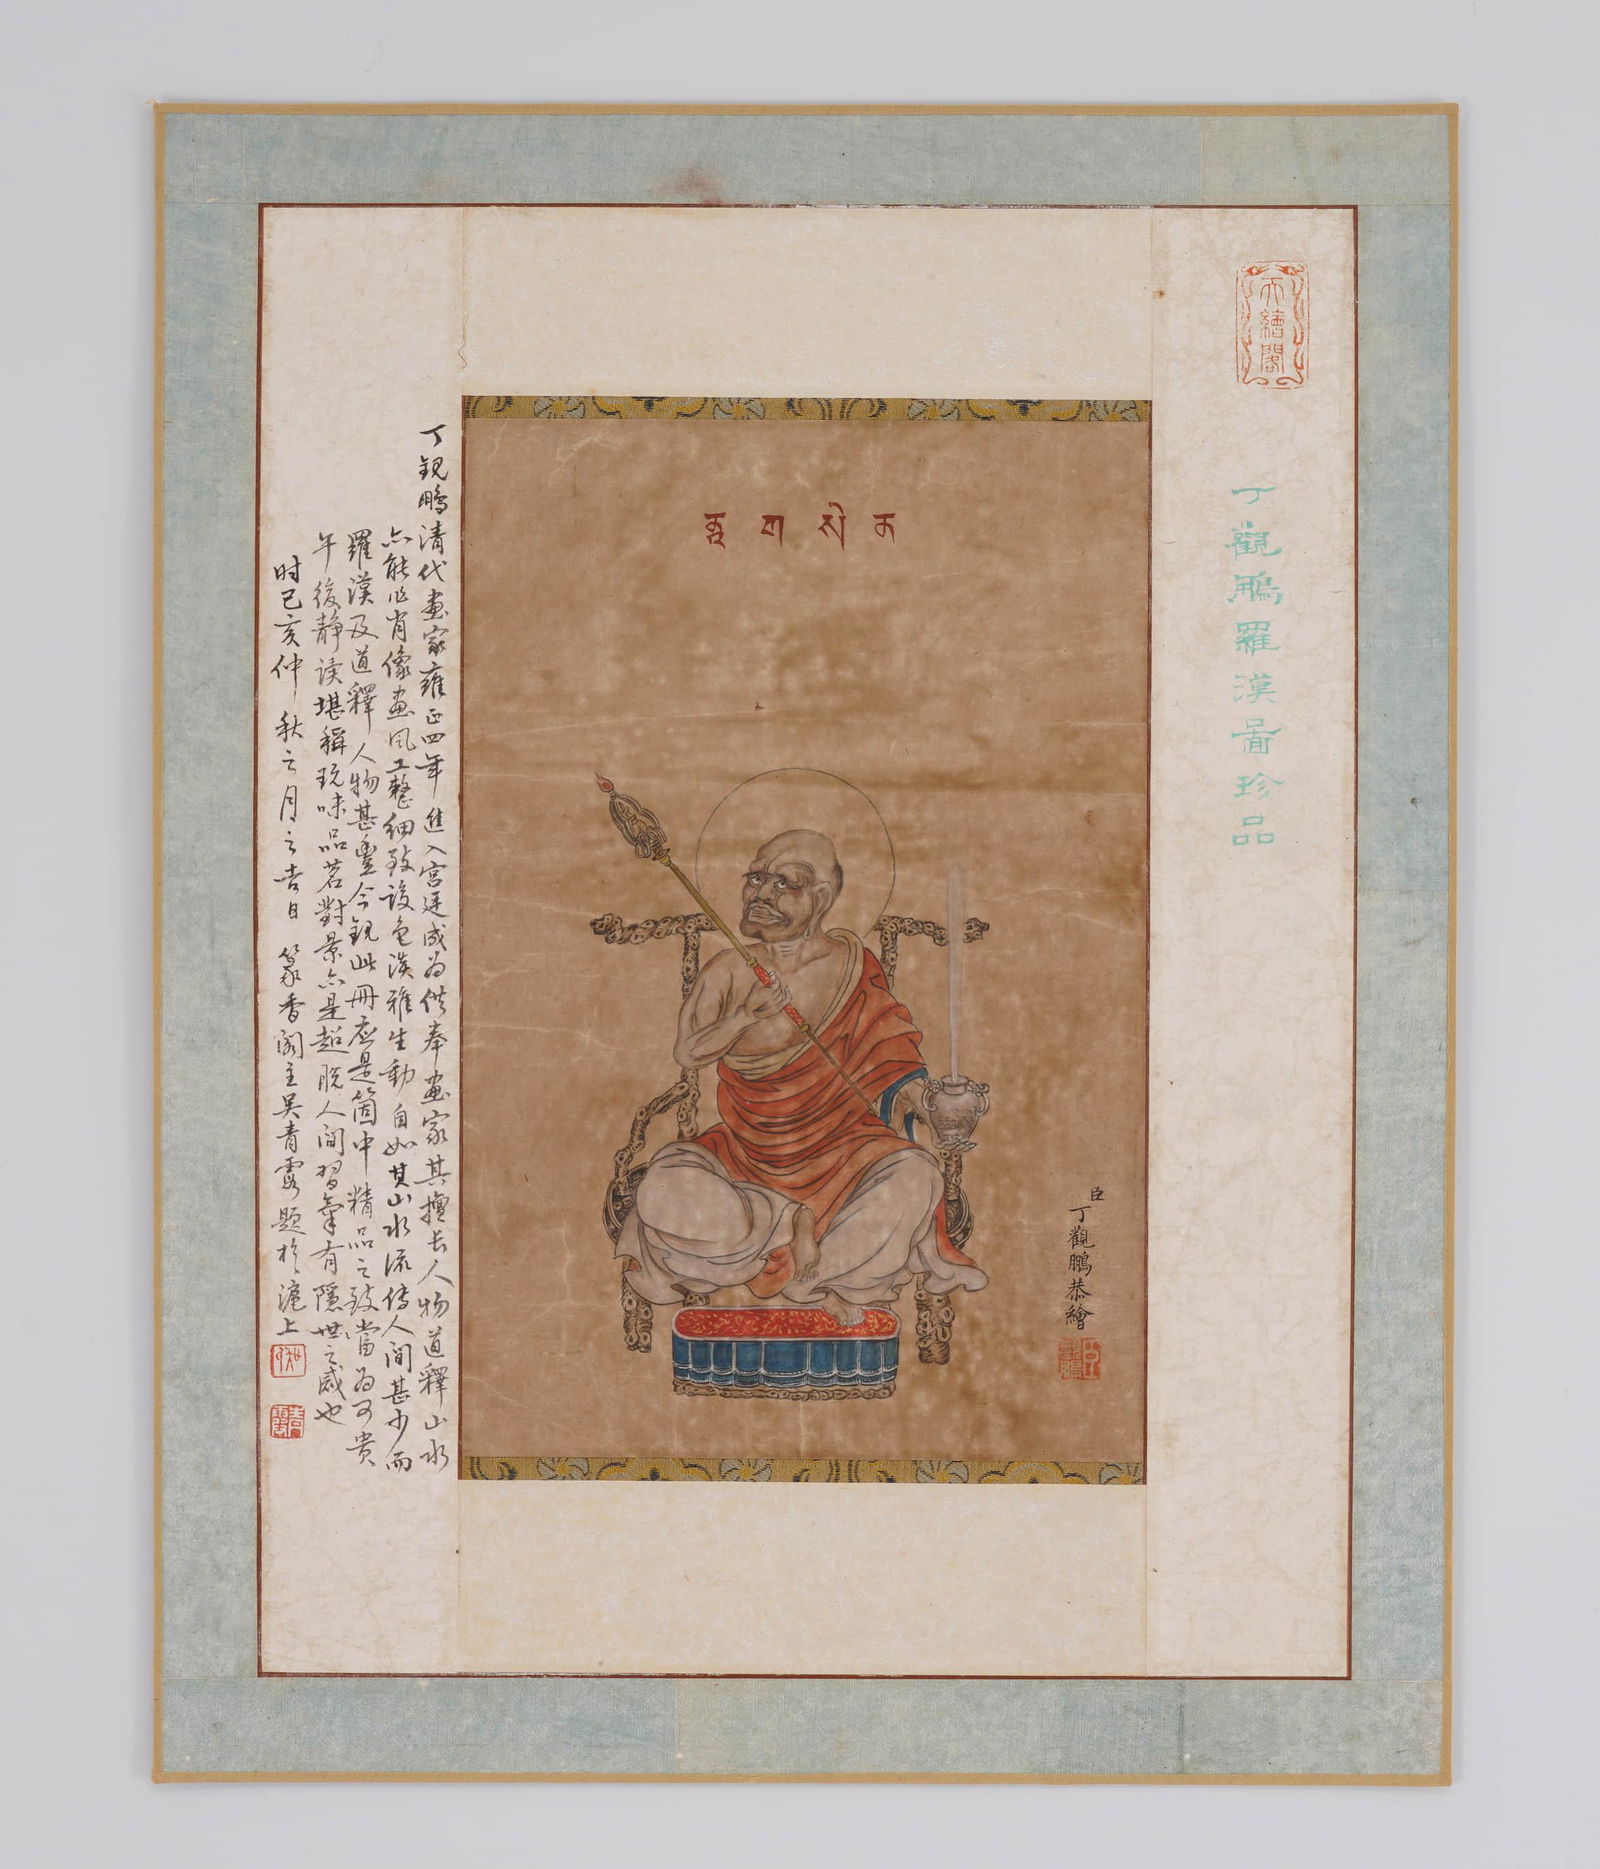 天繪閣
丁觀鵬羅漢圖珍品
臣丁觀鵬恭繪
丁觀鵬清代畫家雍正四年進入宮廷成為供奉畫家其擅長人物道釋山水
亦能作肖像畫风工整細致設色淡雅生動自如其山水流傳人间甚少而
羅漢及道釋人物甚豐今觀此冊应是箇中精品之致當為可贵
午後靜读堪稱玩味品茗對景亦是超脫人间習氣有隱世之感也
时己亥仲秋之月之吉日 篆香阁主吴青霞题於滬上